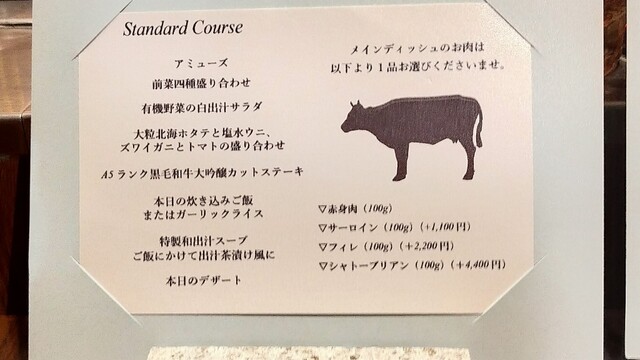 Standard Course
アミューズ
前菜四種盛り合わせ
有機野菜の白出汁サラダ
大粒北海ホタテと塩水ウニ、
ズワイガニとトマトの盛り合わせ
A5ランク黒毛和牛大吟醸カットステーキ
本日の炊き込みご飯
またはガーリックライス
特製和出汁スープ
ご飯にかけて出汁茶漬け風に
本日のデザート
メインディッシュのお肉は
以下より1品お選びくださいませ。
▽赤身肉（100g）
▽サーロイン（100g）（+1,100円）
▽フィレ（100g）（＋2,200円）
▽シャトーブリアン（100g）（＋4,400円）